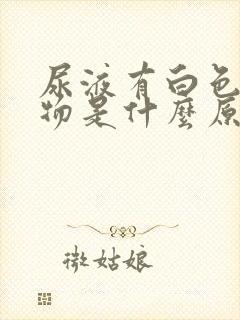 尿液有白色
物是什麼原
微姑娘